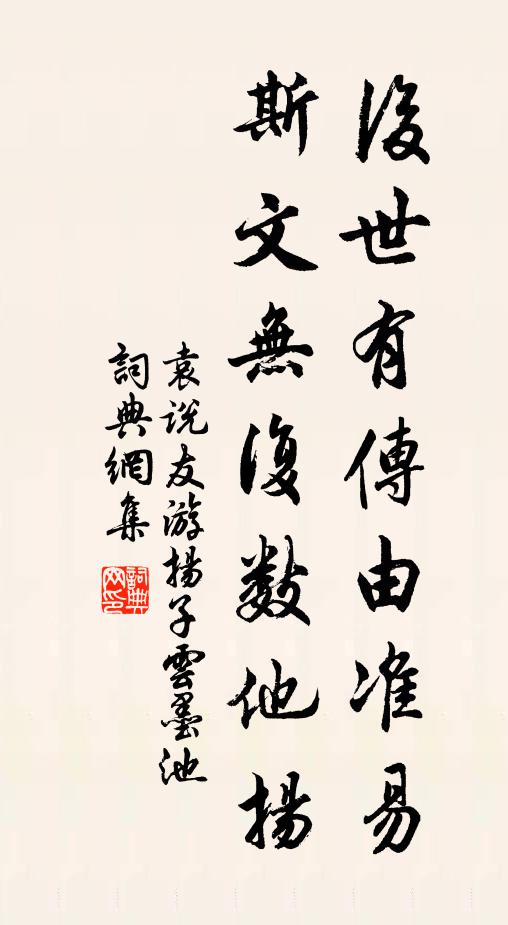 後世有傳由准易
斯文無復數他揚
袁说友游揚子雲墨池
詞典網集
詞典網印